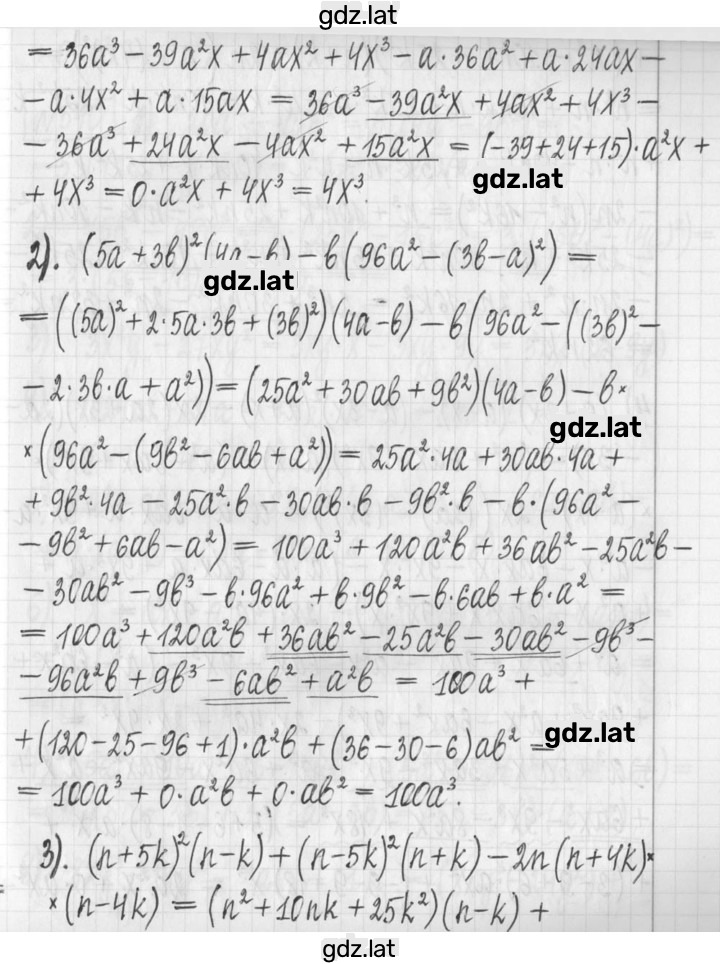 gdz.lat
= 36a³ − 39a²x + 4ax² + 4x³ − a·36a² + a·24ax −
− a·4x² + a·15ax = 36a³ − 39a²x + 4ax² + 4x³ −
− 36a³ + 24a²x − 4ax² + 15a²x = (−39+24+15)·a²x +
+ 4x³ = 0·a²x + 4x³ = 4x³.
gdz.lat
2). (5a + 3b)²(4a − b) − b(96a² − (3b−a)²) =
gdz.lat
= ((5a)² + 2·5a·3b + (3b)²)(4a−b) − b(96a² − ((3b)² −
− 2·3b·a + a²)) = (25a² + 30ab + 9b²)(4a − b) − b×
gdz.lat
×(96a² − (9b² − 6ab + a²)) = 25a²·4a + 30ab·4a +
+ 9b²·4a − 25a²·b − 30ab·b − 9b²·b − b·(96a² −
− 9b² + 6ab − a²) = 100a³ + 120a²b + 36ab² − 25a²b −
− 30ab² − 9b³ − b·96a² + b·9b² − b·6ab + b·a² =
= 100a³ + 120a²b + 36ab² − 25a²b − 30ab² − 9b³ −
− 96a²b + 9b³ − 6ab² + a²b = 100a³ +
+ (120−25−96+1)·a²b + (36−30−6)ab² =
gdz.lat
= 100a³ + 0·a²b + 0·ab² = 100a³.
3). (n+5k)²(n−k) + (n−5k)²(n+k) − 2n(n+4k)×
×(n−4k) = (n² + 10nk + 25k²)(n−k) +
gdz.lat